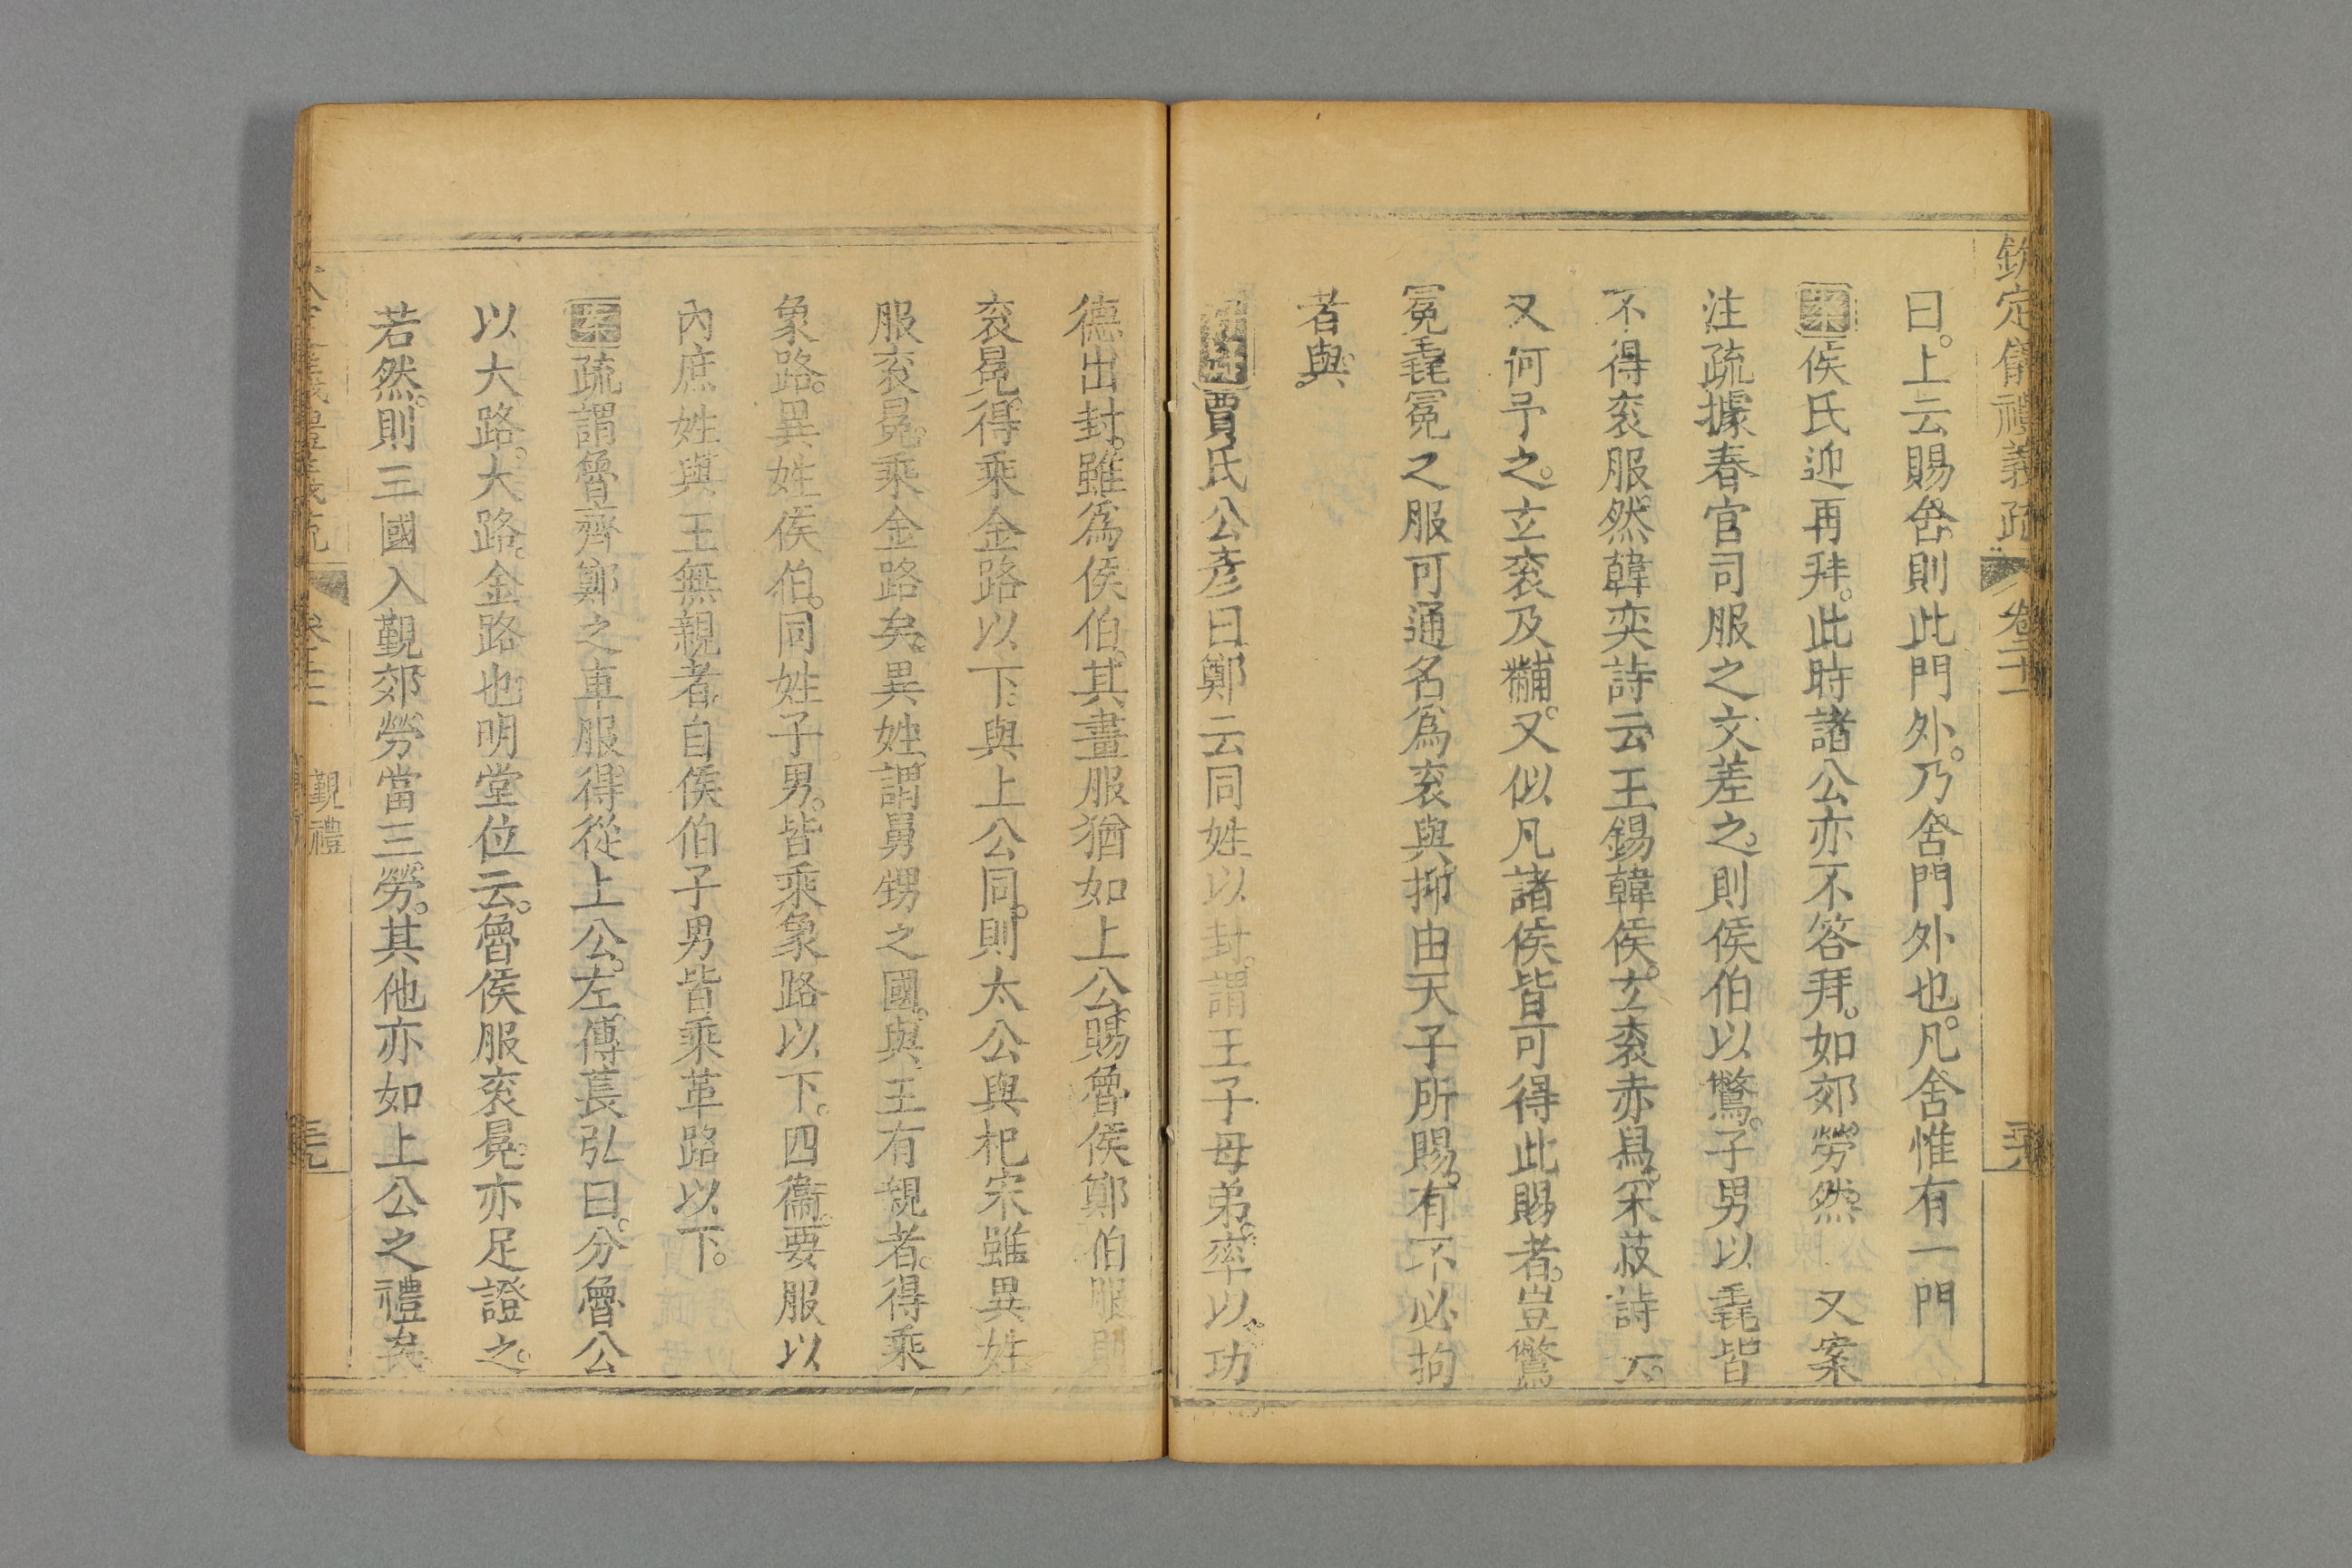 欽定儀禮義疏 卷二十一
曰。上云賜舍。則此門外。乃舍門外也。凡舍惟有一門
案侯氏迎再拜。此時諸公亦不答拜。如郊勞然。 又案
注疏據春官司服之文差之。則侯伯以鷩。子男以毳皆
不得衮服。然韓奕詩云王錫韓侯。玄衮赤舄。采菽詩
又何予之。玄衮及黼。又似凡諸侯皆可得此賜者。豈鷩
冕毳冕之服可通名爲衮與。抑由天子所賜。有不必拘
者與。
賈氏公彥曰鄭云同姓以封。謂王子母弟。率以功
德出封。雖爲侯伯。其畫服猶如上公。賜魯侯鄭伯服則
衮冕。得乘金路以下。與上公同。則太公與杞宋雖異姓
服衮冕。乘金路矣。異姓。謂舅甥之國。與王有親者。得乘
象路。異姓侯伯。同姓子男。皆乘象路以下。四衞。要服以
內庶姓與王無親者。自侯伯子男皆乘革路以下。
案疏謂魯齊鄭之車服。得從上公。左傳萇弘曰。分魯公
以大路。大路。金路也。明堂位云。魯侯服衮冕。亦足證之。
若然。則三國入覲郊勞。當三勞。其他亦如上公之禮矣
覲禮